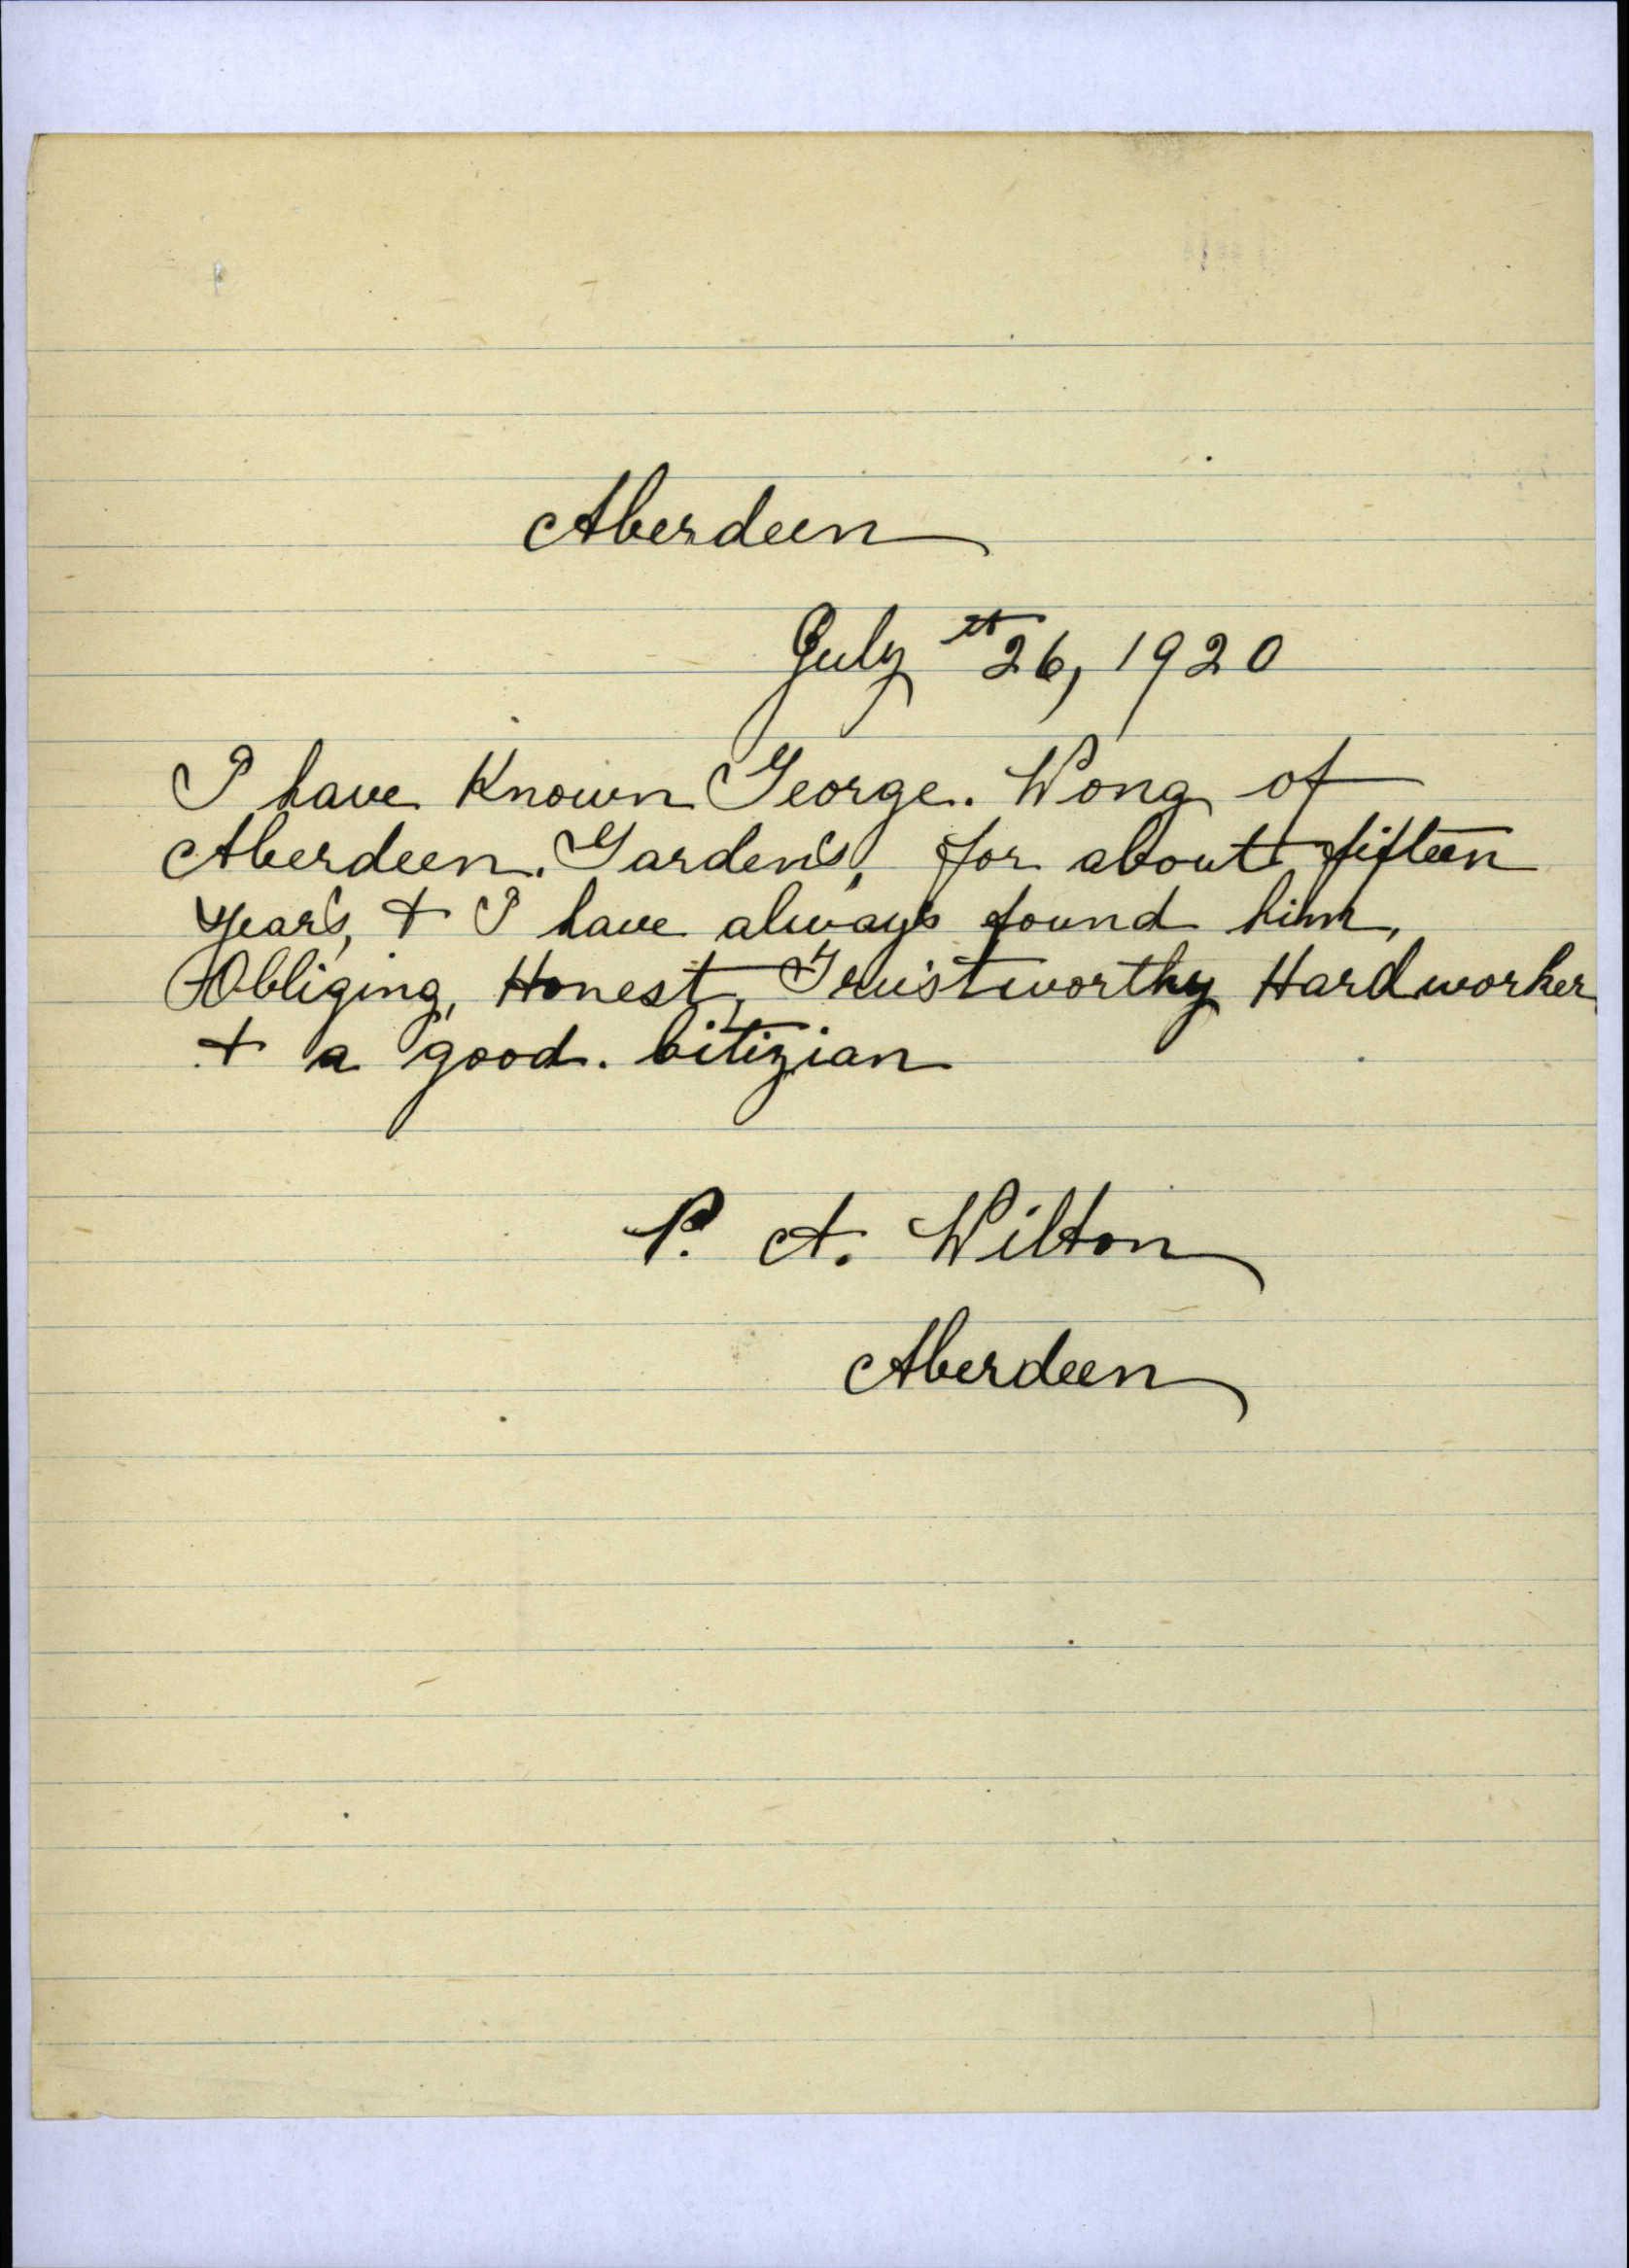 Aberdeen
July th 26, 1920
I have Known George. Wong of
Aberdeen. Garden's, for about fifteen
year's, + I have always found him,
Obliging, Honest, Trustworthy Hardworker
+ a good. Citizian
P. A. Wilton
Aberdeen